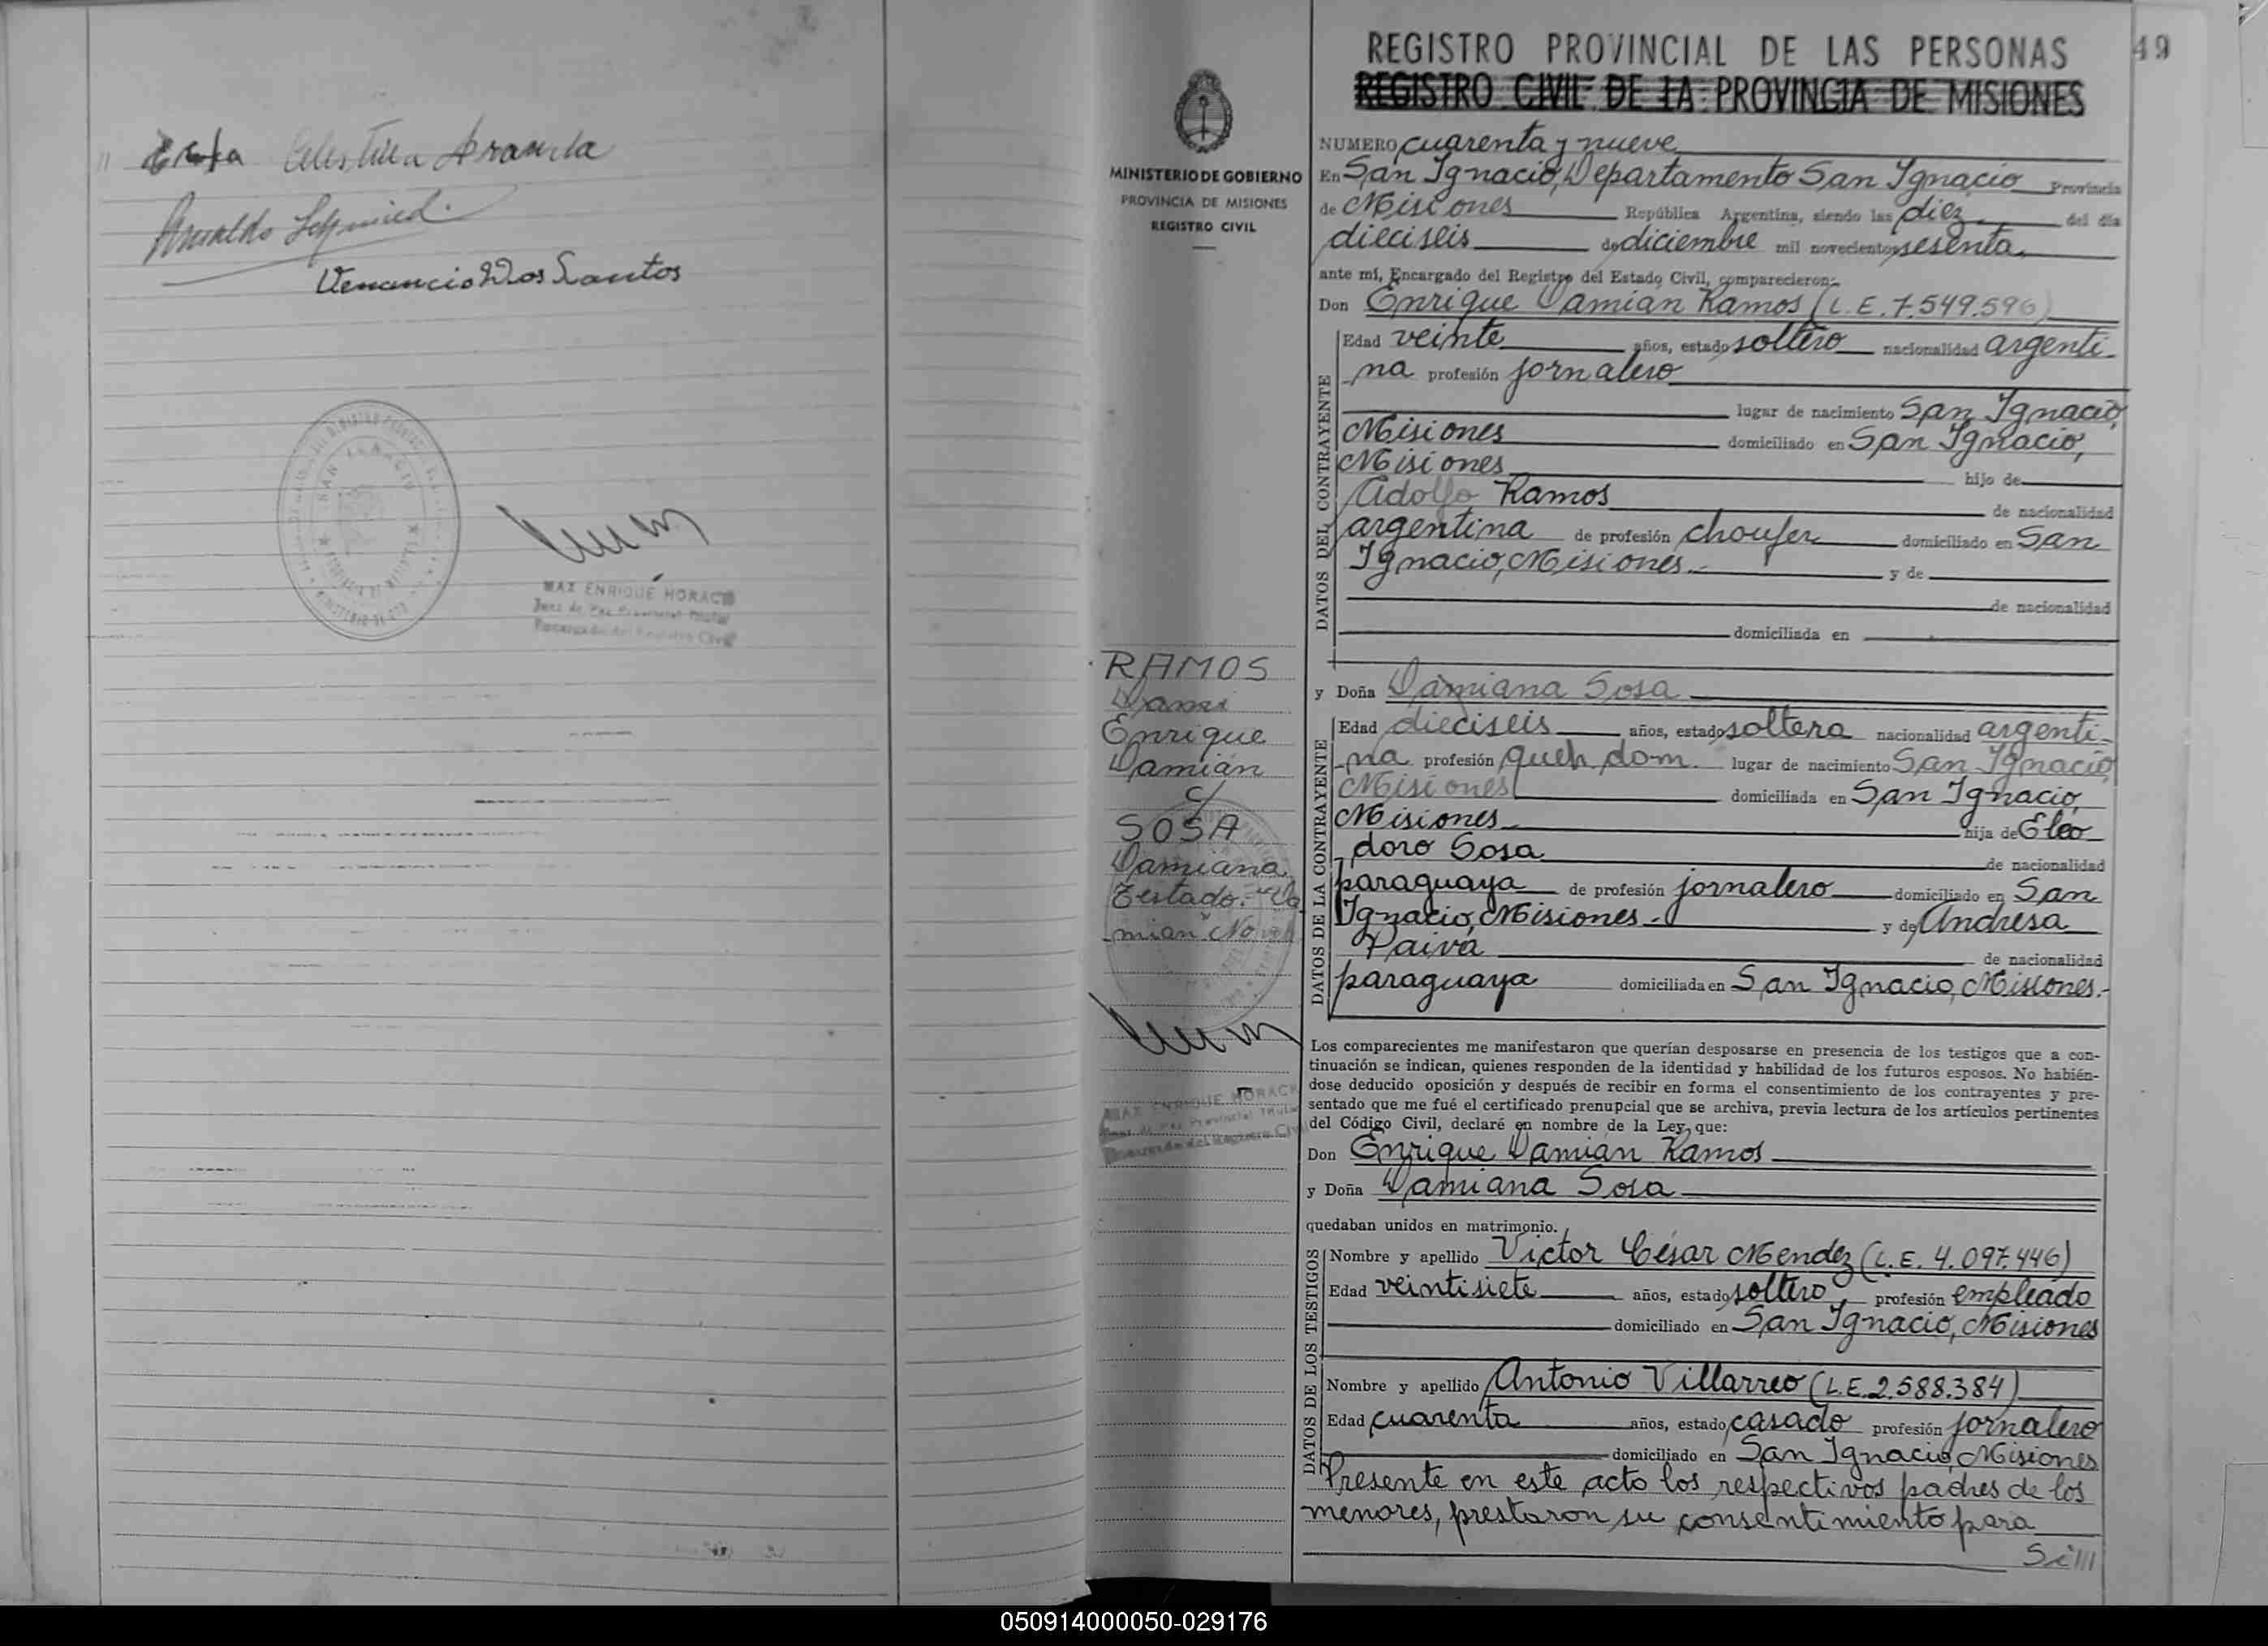 Celestina Aranda
Arnaldo Schmied.
Venancio Dos Santos
SAN IGNACIO
MAX ENRIQUE HORACIO
Juez de Paz Provincial Titular
Encargado del Registro Civil
49
MINISTERIO DE GOBIERNO
PROVINCIA DE MISIONES
REGISTRO CIVIL
RAMOS
Dami
Enrique
Damián
c/
SOSA
Damiana
Testado: "Da
mian" No vale
MAX ENRIQUE HORACIO
Juez de Paz Provincial Titular
Encargado del Registro Civil
REGISTRO PROVINCIAL DE LAS PERSONAS
REGISTRO CIVIL DE LA PROVINCIA DE MISIONES
NUMERO cuarenta y nueve
En San Ignacio, Departamento San Ignacio Provincia
de Misiones República Argentina, siendo las diez del día
dieciseis de diciembre mil novecientos sesenta
ante mí, Encargado del Registro del Estado Civil, comparecieron:
Don Enrique Damián Ramos (L.E. 7.549.596)
DATOS DEL CONTRAYENTE
Edad veinte años, estado soltero nacionalidad argenti-
na profesión jornalero
lugar de nacimiento San Ignacio,
Misiones domiciliado en San Ignacio,
Misiones hijo de
Adolfo Ramos de nacionalidad
argentina de profesión choufer domiciliado en San
Ignacio, Misiones.- y de
de nacionalidad
domiciliada en
y Doña Damiana Sosa
DATOS DE LA CONTRAYENTE
Edad dieciseis años, estado soltera nacionalidad argenti-
na profesión queh. dom. lugar de nacimiento San Ignacio,
Misiones domiciliada en San Ignacio,
Misiones hija de Eleo
doro Sosa de nacionalidad
paraguaya de profesión jornalero domiciliado en San
Ignacio, Misiones.- y de Andresa
Paiva de nacionalidad
paraguaya domiciliada en San Ignacio, Misiones.-
Los comparecientes me manifestaron que querían desposarse en presencia de los testigos que a con-
tinuación se indican, quienes responden de la identidad y habilidad de los futuros esposos. No habién-
dose deducido oposición y después de recibir en forma el consentimiento de los contrayentes y pre-
sentado que me fué el certificado prenupcial que se archiva, previa lectura de los artículos pertinentes
del Código Civil, declaré en nombre de la Ley, que:
Don Enrique Damián Ramos
y Doña Damiana Sosa
quedaban unidos en matrimonio.
DATOS DE LOS TESTIGOS
Nombre y apellido Victor César Mendez (L.E. 4.097.446)
Edad veintisiete años, estado soltero profesión empleado
domiciliado en San Ignacio, Misiones
Nombre y apellido Antonio Villarreo (L.E. 2.588.384)
Edad cuarenta años, estado casado profesión jornalero
domiciliado en San Ignacio, Misiones
Presente en este acto los respectivos padres de los
menores, prestaron su consentimiento para
Si///
050914000050-029176